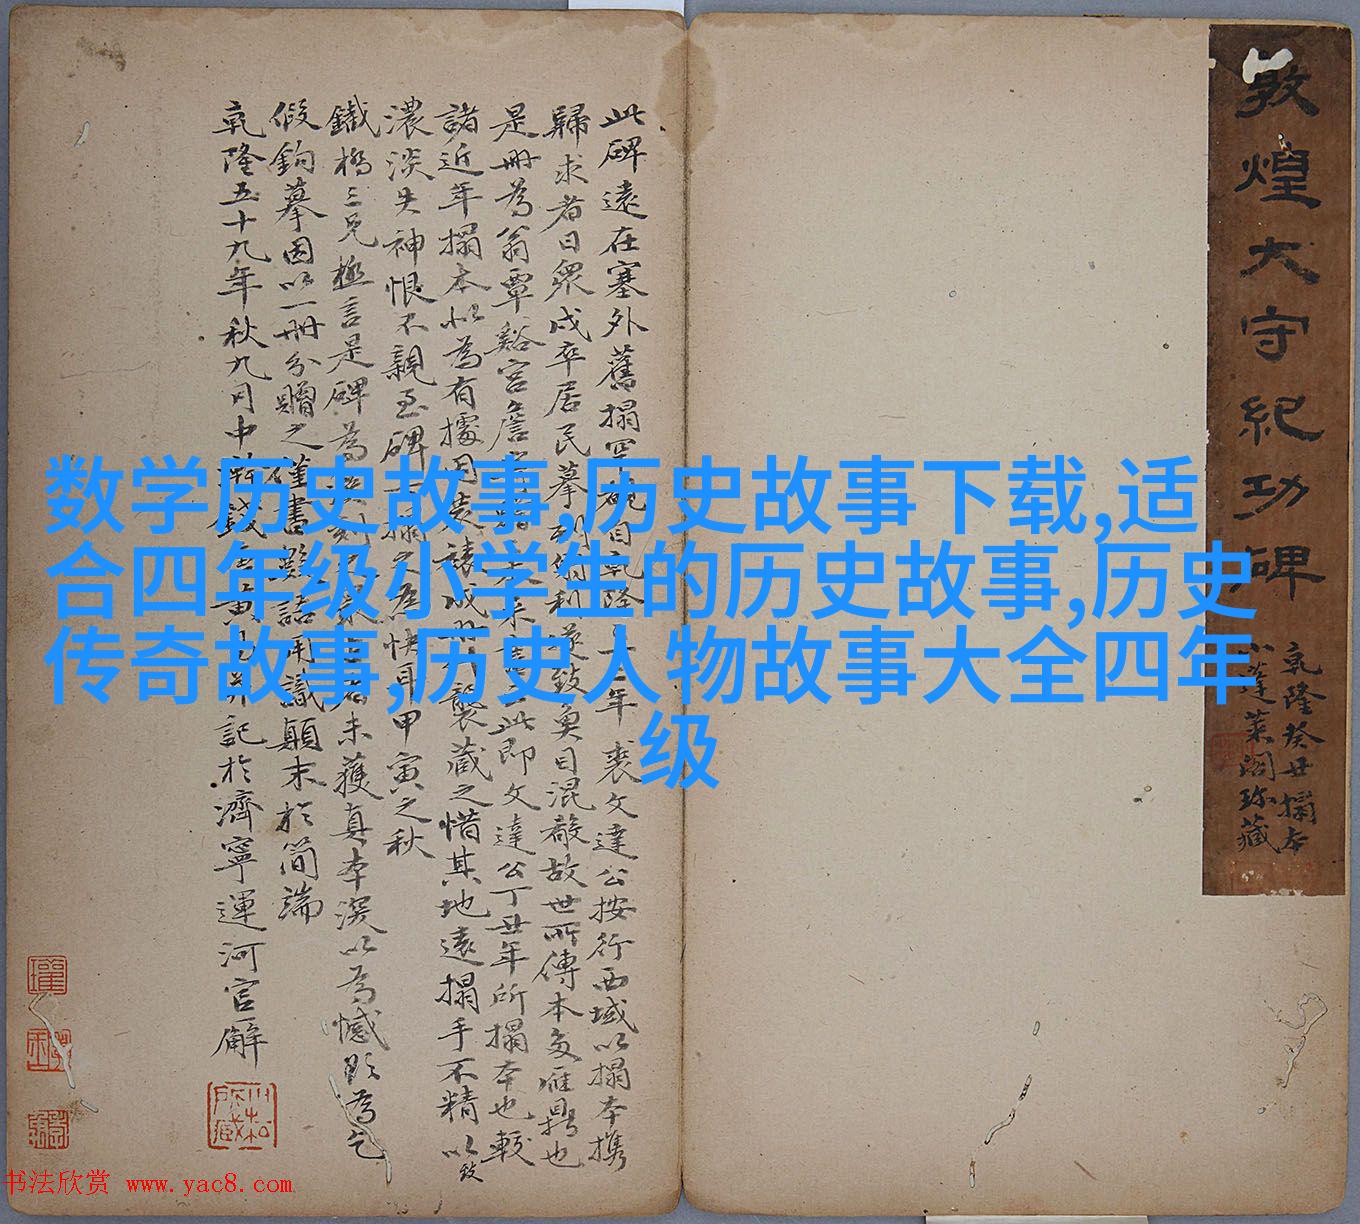 敦煌大守紀功碑
乾隆癸丑搨本
小蓬萊閣珍藏
此碑遠在塞外舊搨罕 自乾隆 二年裘文達公按行西域以搨本攜
歸求者日眾戍卒居民摹刻 利遂致 目混殽故世所傳本多雁鼎也
是冊為翁覃谿宮詹 來 此即文達公丁丑年所搨本也較
諸近年搨本以為有據因裝 成冊 襲藏之惜其地遠搨手不精以致
濃淡失神恨不親至碑下搨之為快耳甲寅之秋
鐵橋三兄極言是碑為 刻 未獲真本深以為憾 為乞
假鉤摹因以一冊分贈之僅書數語用識顛末於簡端
乾隆五十九年秋九月中澣錢唐黃易並記於濟寧運河官廨
小松所藏
数学历史故事,历史故事下载,适
合四年级小学生的历史故事,历史
传奇故事,历史人物故事大全四年
级
书法欣赏 www.yac8.com